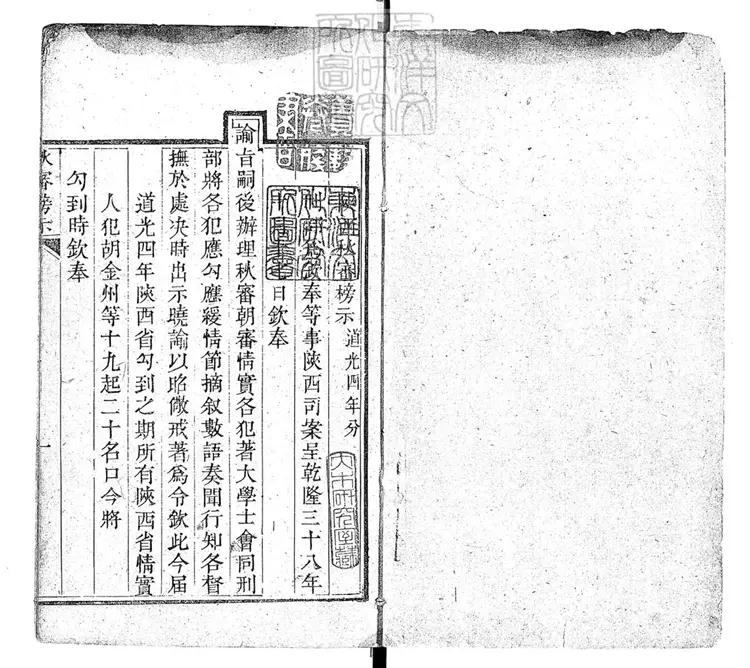 秋審榜示 道光四年分
爲欽奉等事陝西司案呈乾隆三十八年
日欽奉
諭旨嗣後辦理秋審朝審情實各犯著大學士會同刑
部將各犯應勾應緩情節摘叙數語奏聞行知各督
撫於處决時出示曉諭以昭儆戒著爲令欽此今届
道光四年陝西省勾到之期所有陝西省情實
人犯胡金州等十九起二十名口今將
勾到時欽奉
秋審榜示
一